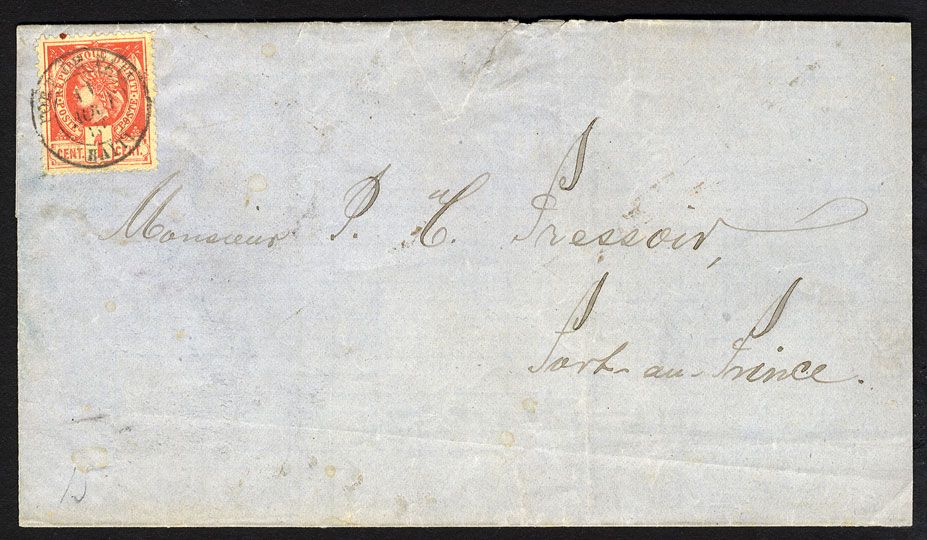 POSTES · REPUBLIQUE D'HAITI · POSTES
1
CENT. CENT.
HAITI
Monsieur P. C. Pressoir,
Port-au-Prince.